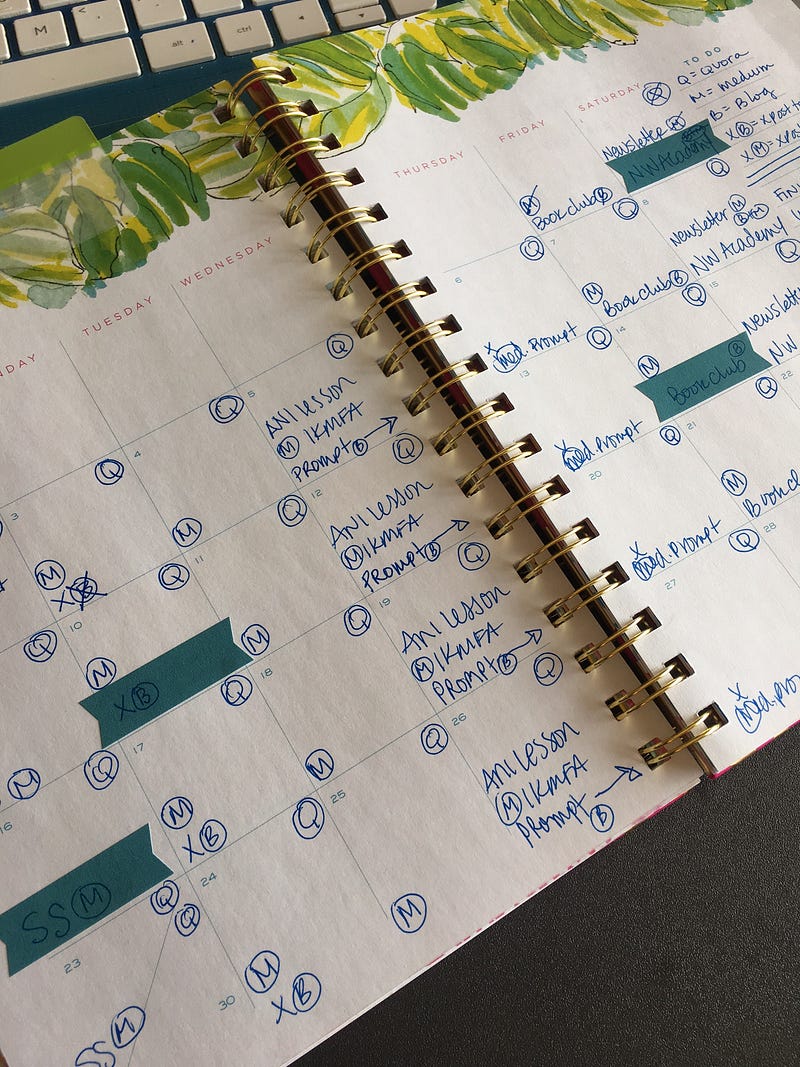 M
alt
ctrl
TUESDAY
WEDNESDAY
THURSDAY
FRIDAY
SATURDAY
TO DO
Q = Quora
M = medium
B = Blog
Newsletter
NW Academy
Q
M
Book club B
Q
Q
Q
Q
3
4
5
ANI lesson
M 1KMFA
Prompt B
Q
6
7
8
M
Book club B
Q
Newsletter M
NW Academy
Q
M
X B
Q
M
Q
Q
10
11
12
ANI lesson
M 1KMFA
Prompt B
Q
X Med. Prompt
Q
13
14
15
M
Book club B
Q
Q
M
X B
M
Q
Q
17
18
19
ANI lesson
M 1KMFA
Prompt B
Q
X Med. Prompt
Q
20
21
22
M
Q
M
Q
16
SS M
Q
Q
M
X B
M
Q
Q
23
24
25
26
ANI lesson
M 1KMFA
Prompt B
X Med. Prompt
27
28
SS M
30
M
X B
M
X